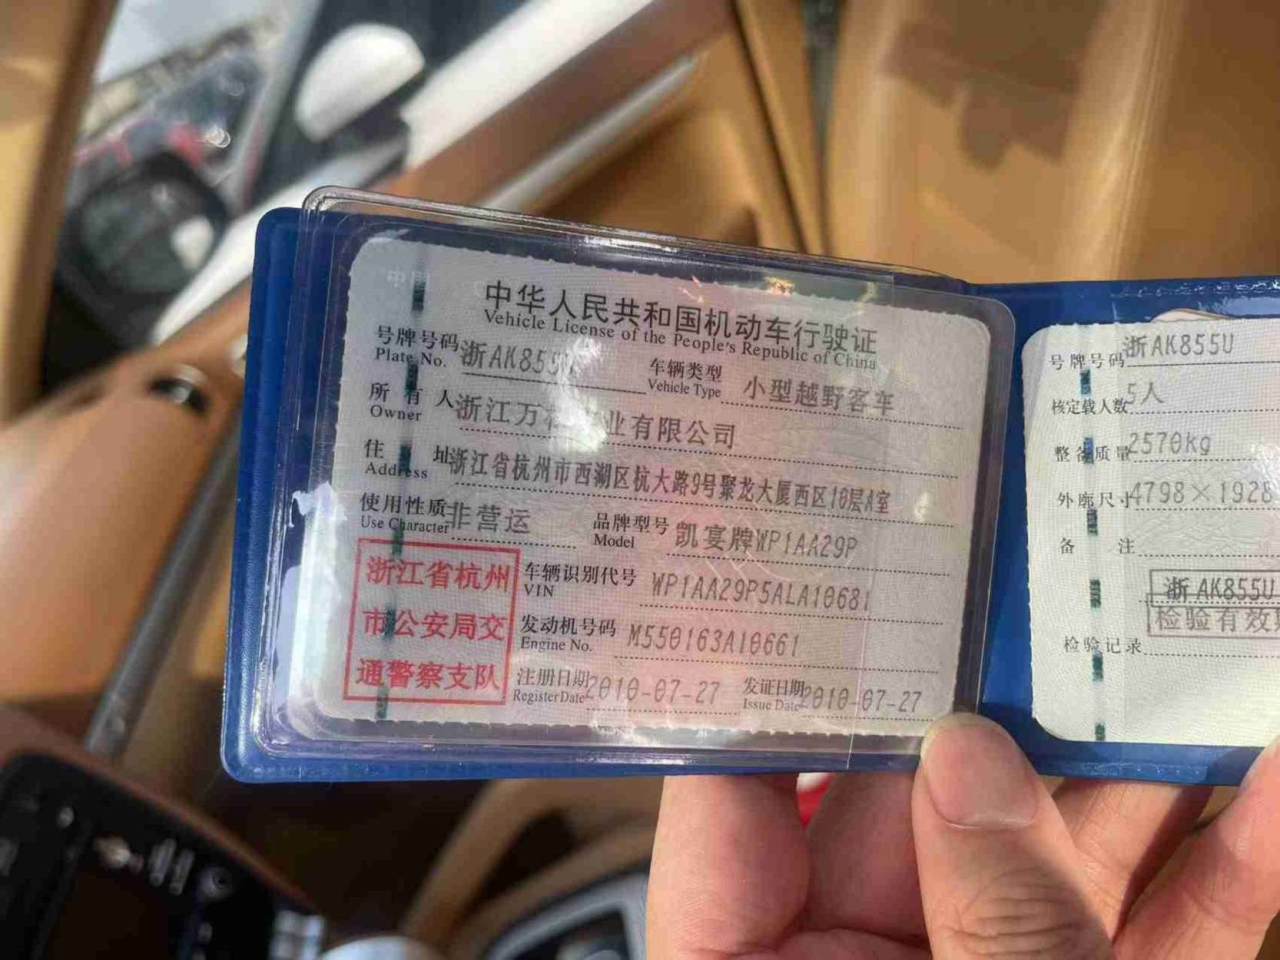 中华人民共和国机动车行驶证
Vehicle License of the People's Republic of China
号牌号码 浙AK855 车辆类型 小型越野客车
Plate No. Vehicle Type
所有人 浙江万 业有限公司
Owner
住址 浙江省杭州市西湖区杭大路9号聚龙大厦西区10层A室
Address
使用性质 非营运 品牌型号 凯宴牌WP1AA29P
Use Character Model
浙江省杭州
市公安局交
通警察支队
车辆识别代号 WP1AA29P5ALA10681
VIN
发动机号码 M550163A10661
Engine No.
注册日期 2010-07-27 发证日期 2010-07-27
Register Date Issue Date
号牌号码 浙AK855U
核定载人数 5人
整备质量 2570kg
外廓尺寸 4798×1928
备注
浙AK855U
检验记录 检验有效